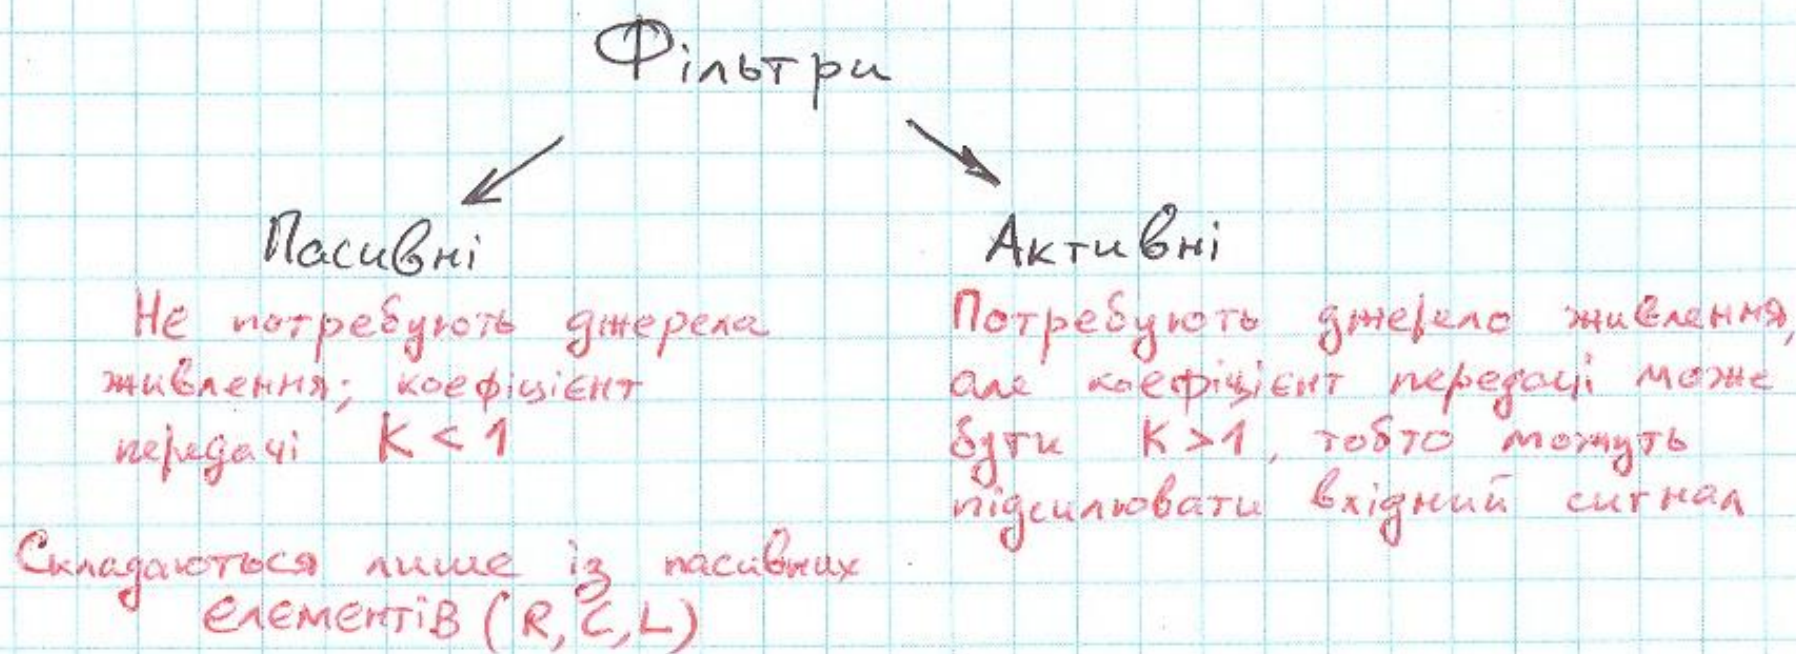 Фільтри
Пасивні
Не потребують джерела
живлення; коефіцієнт
передачі K < 1
Складаються лише із пасивних
елементів (R, C, L)
Активні
Потребують джерело живлення,
але коефіцієнт передачі може
бути K > 1, тобто можуть
підсилювати вхідний сигнал